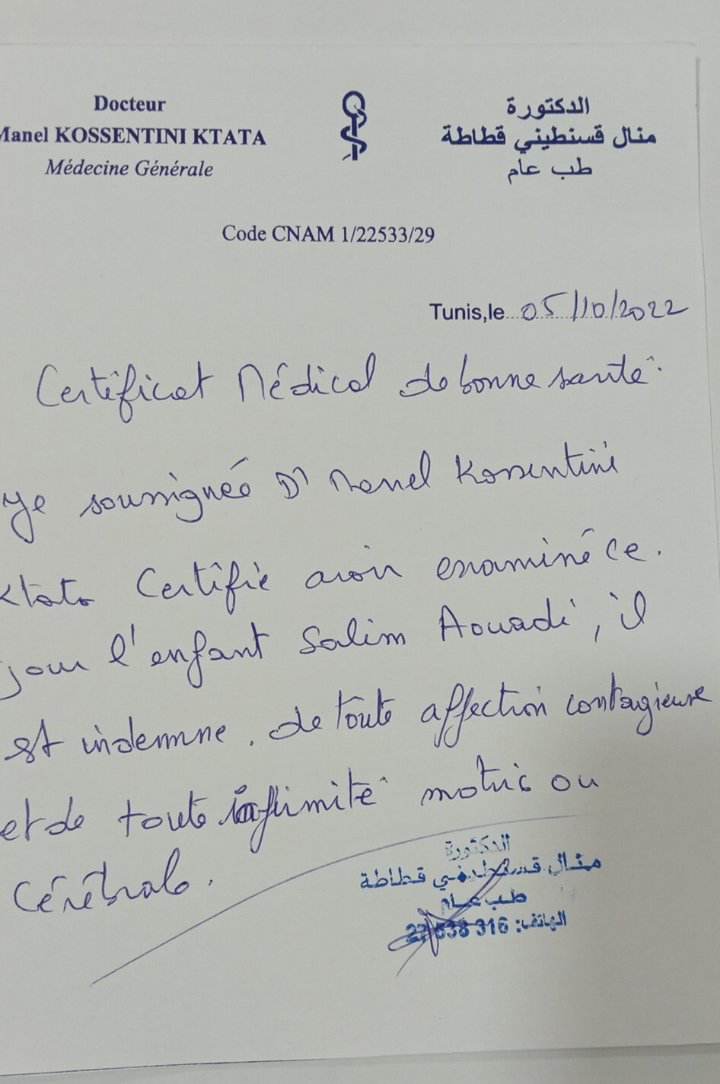 Docteur
Manel KOSSENTINI KTATA
Médecine Générale
الدكتورة
منال قسنطيني قطاطة
طب عام
Code CNAM 1/22533/29
Tunis,le 05/10/2022
Certificat Médical de bonne santé.
Je soussignée Dr Manel Kossentini
Ktata Certifie avoir examiné ce.
jour l'enfant Salim Aouadi, il
est indemne. de toute affection contagieuse
et de toute infirmité motric ou
Cérébrale.
الدكتورة
منال قسنطيني قطاطة
طب عام
الهاتف: 316